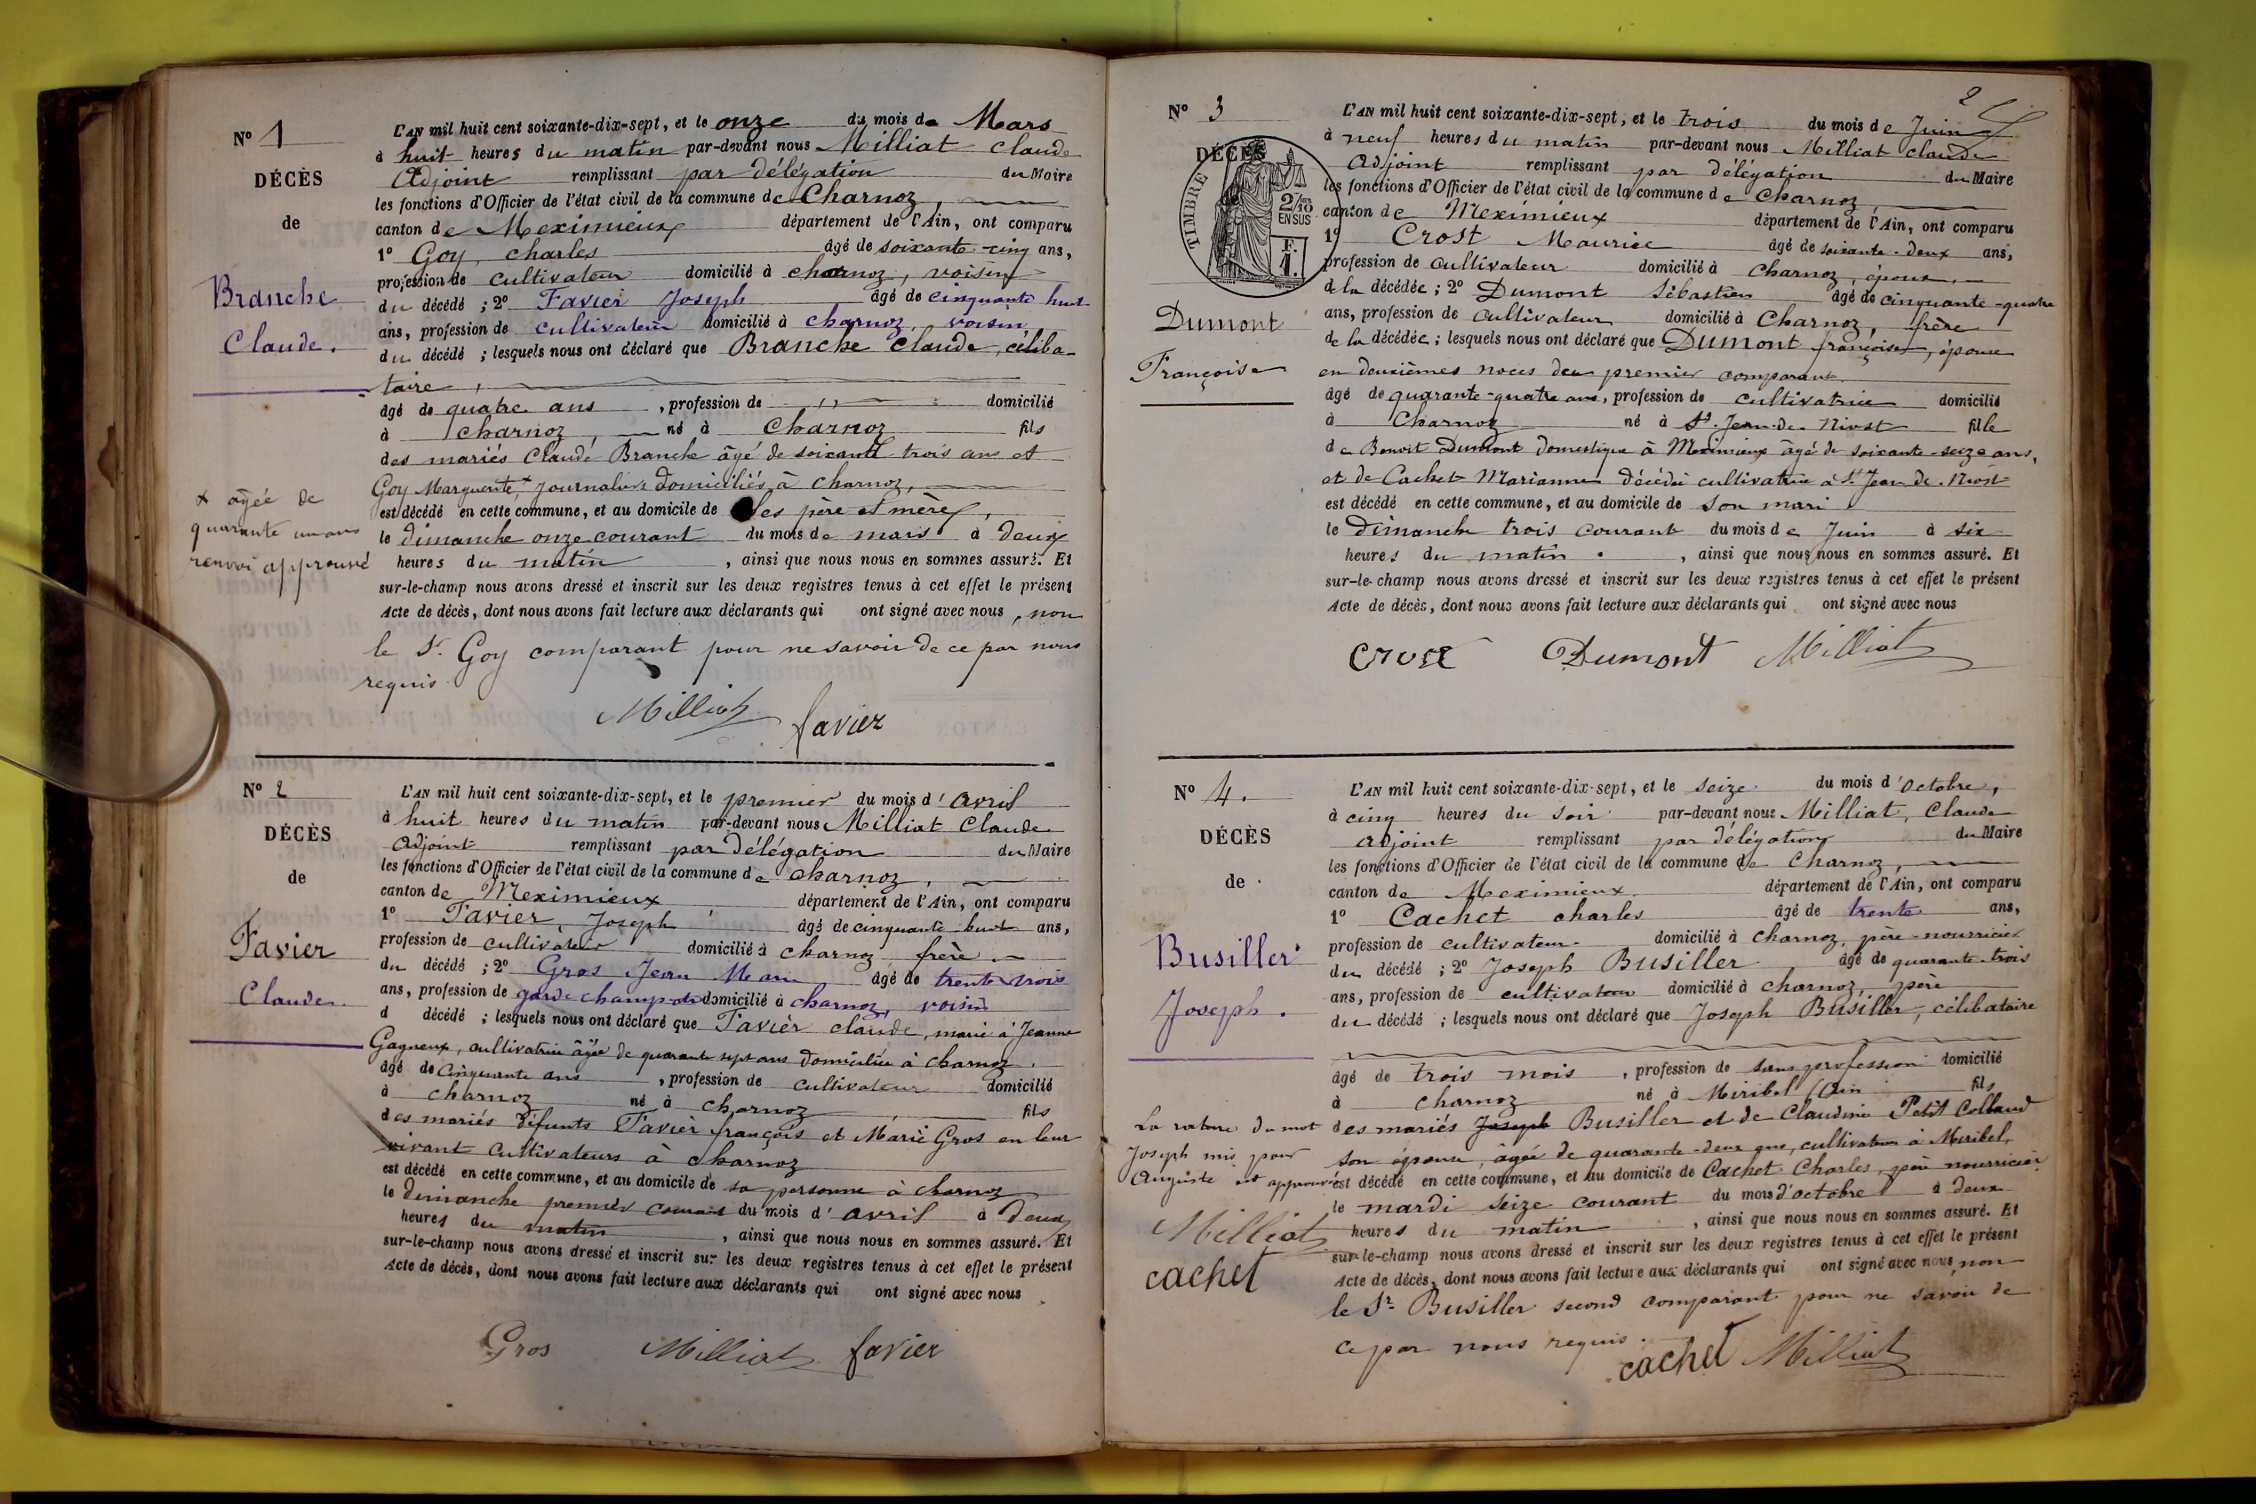 N° 1
DÉCÈS
de
Branche
Claude.
+ âgée de
quarante un ans
renvoi approuvé
L'AN mil huit cent soixante-dix-sept, et le onze du mois de Mars
à huit heures du matin par-devant nous Milliat Claude
Adjoint remplissant par délégation du Maire
les fonctions d'Officier de l'état civil de la commune de Charnoz,
canton de Meximieux département de l'Ain, ont comparu
1° Goy, charles âgé de soixante-cinq ans,
profession de cultivateur domicilié à charnoz, voisin
du décédé ; 2° Favier Joseph âgé de cinquante huit
ans, profession de cultivateur domicilié à charnoz, voisin
du décédé ; lesquels nous ont déclaré que Branche claude, céliba-
taire,
âgé de quatre ans, profession de domicilié
à charnoz né à Charnoz fils
des mariés Claude Branche âgé de soixante-trois ans et
Goy Marguerite + journaliers domiciliés à charnoz,
est décédé en cette commune, et au domicile de Ses père et mère,
le dimanche onze courant du mois de mars à deux
heures du matin, ainsi que nous nous en sommes assuré. Et
sur-le-champ nous avons dressé et inscrit sur les deux registres tenus à cet effet le présent
Acte de décès, dont nous avons fait lecture aux déclarants qui ont signé avec nous, non
le Sr. Goy comparant pour ne savoir de ce par nous
requis
Milliat favier
N° 2
DÉCÈS
de
Favier
Claude.
L'AN mil huit cent soixante-dix-sept, et le premier du mois d'avril
à huit heures du matin par-devant nous Milliat Claude
Adjoint remplissant par délégation du Maire
les fonctions d'Officier de l'état civil de la commune de charnoz,
canton de Meximieux département de l'Ain, ont comparu
1° Favier, Joseph âgé de cinquante-huit ans,
profession de cultivateur domicilié à charnoz frère
du décédé ; 2° Gros Jean Marie âgé de trente trois
ans, profession de garde champêtre domicilié à charnoz, voisin
d décédé ; lesquels nous ont déclaré que Favier claude, marié à Jeanne
Gagneux, cultivatrice âgée de quarante sept ans domiciliée à charnoz.
âgé de Cinquante ans, profession de cultivateur domicilié
à charnoz né à charnoz fils
des mariés défunts Favier françois et Marie Gros en leur
vivant cultivateurs à charnoz
est décédé en cette commune, et au domicile de sa personne à charnoz
le dimanche premier courant du mois d'avril à deux
heures du matin, ainsi que nous nous en sommes assuré. Et
sur-le-champ nous avons dressé et inscrit sur les deux registres tenus à cet effet le présent
Acte de décès, dont nous avons fait lecture aux déclarants qui ont signé avec nous
Gros Milliat favier
2
N° 3
DÉCÈS
TIMBRE
2/10
EN SUS
F.
1.
Dumont
Françoise
L'AN mil huit cent soixante-dix-sept, et le trois du mois de Juin
à neuf heures du matin par-devant nous Milliat claude
Adjoint remplissant par délégation du Maire
les fonctions d'Officier de l'état civil de la commune de Charnoz
canton de Meximieux département de l'Ain, ont comparu
1° Crost Maurice âgé de soixante-deux ans,
profession de cultivateur domicilié à Charnoz, époux
de la décédée ; 2° Dumont Sébastien âgé de cinquante-quatre
ans, profession de cultivateur domicilié à Charnoz, frère
de la décédée ; lesquels nous ont déclaré que Dumont françoise, épouse
en deuxièmes noces du premier comparant
âgé de quarante-quatre ans, profession de cultivatrice domicilié
à Charnoz né à St. Jean-de-Niost fille
de Benoit Dumont domestique à Meximieux âgé de soixante-seize ans,
et de Cachet Marianne décédée cultivatrice à St. Jean de Niost
est décédé en cette commune, et au domicile de son mari
le Dimanche trois courant du mois de Juin à six
heures du matin, ainsi que nous nous en sommes assuré. Et
sur-le-champ nous avons dressé et inscrit sur les deux registres tenus à cet effet le présent
Acte de décès, dont nous avons fait lecture aux déclarants qui ont signé avec nous
crost Dumont Milliat
N° 4.
DÉCÈS
de
Busiller
Joseph.
La rature du mot
Joseph mis pour
Auguste est approuvée
Milliat
cachet
L'AN mil huit cent soixante-dix-sept, et le seize du mois d'octobre,
à cinq heures du soir par-devant nous Milliat, Claude
adjoint remplissant par délégation du Maire
les fonctions d'Officier de l'état civil de la commune de Charnoz,
canton de Meximieux département de l'Ain, ont comparu
1° Cachet charles âgé de trente ans,
profession de cultivateur domicilié à charnoz, père-nourricier
du décédé ; 2° Joseph Busiller âgé de quarante-trois
ans, profession de cultivateur domicilié à charnoz, père
du décédé ; lesquels nous ont déclaré que Joseph Busiller, célibataire
âgé de trois mois, profession de sans profession domicilié
à charnoz né à Miribel (Ain fils
des mariés Joseph Busiller et de Claudine Petit Colland
son épouse, âgée de quarante-deux ans, cultivateurs à Miribel,
est décédé en cette commune, et au domicile de Cachet Charles, père nourricier
le mardi seize courant du mois d'octobre à deux
heures du matin, ainsi que nous nous en sommes assuré. Et
sur-le-champ nous avons dressé et inscrit sur les deux registres tenus à cet effet le présent
Acte de décès, dont nous avons fait lecture aux déclarants qui ont signé avec nous, non
le Sr. Busiller second comparant pour ne savoir de
ce par nous requis.
cachet Milliat